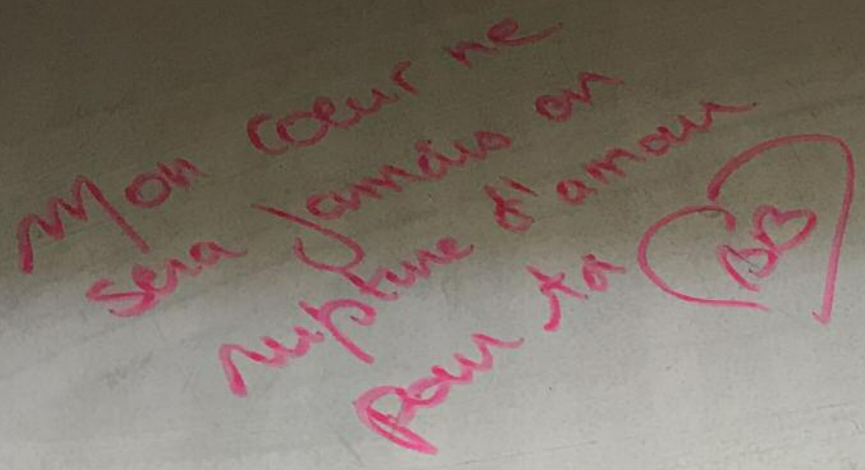 Mon coeur ne
sera jamais en
rupture d'amour
pour toi